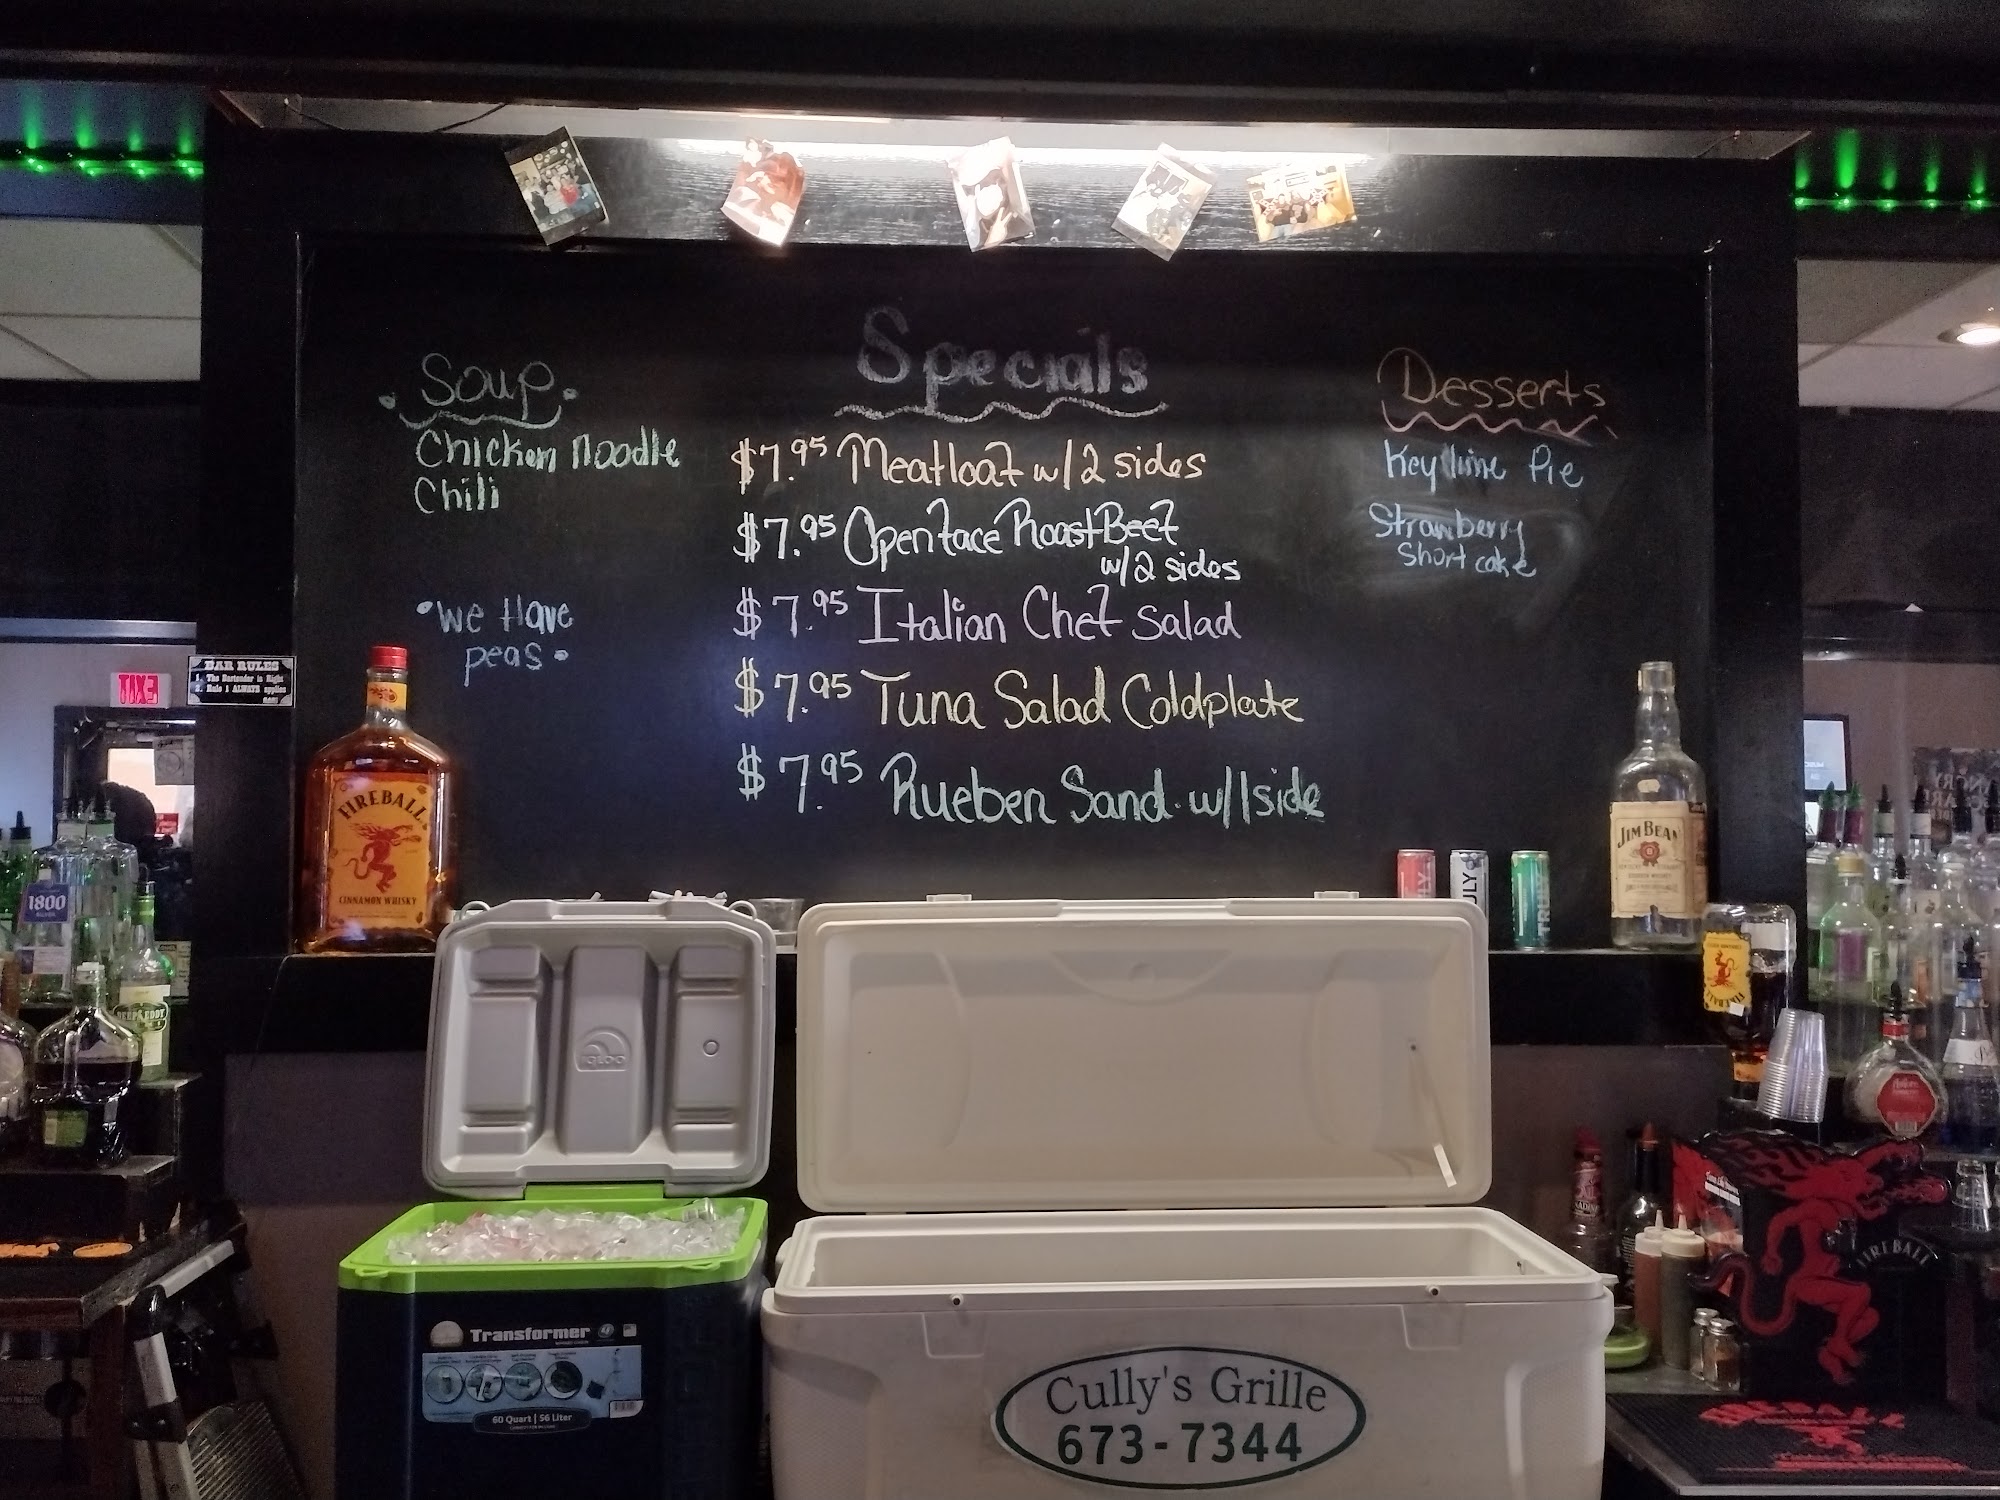 Specials
Soup
Chicken Noodle
Chili
•We Have
peas•
$7.95 Meatloaf w/2 sides
$7.95 Openface Roast Beef
w/2 sides
$7.95 Italian Chef Salad
$7.95 Tuna Salad Coldplate
$7.95 Rueben Sand. w/1side
Desserts
Key lime Pie
Strawberry
Short cake
EXIT
BAR RULES
1. The Bartender is Right
2. Rule 1 ALWAYS applies
FIREBALL
CINNAMON WHISKY
JIM BEAM
1800
DEEP EDDY
IGLOO
Transformer
60 Quart | 56 Liter
Cully's Grille
673-7344
FIREBALL
FIREBALL